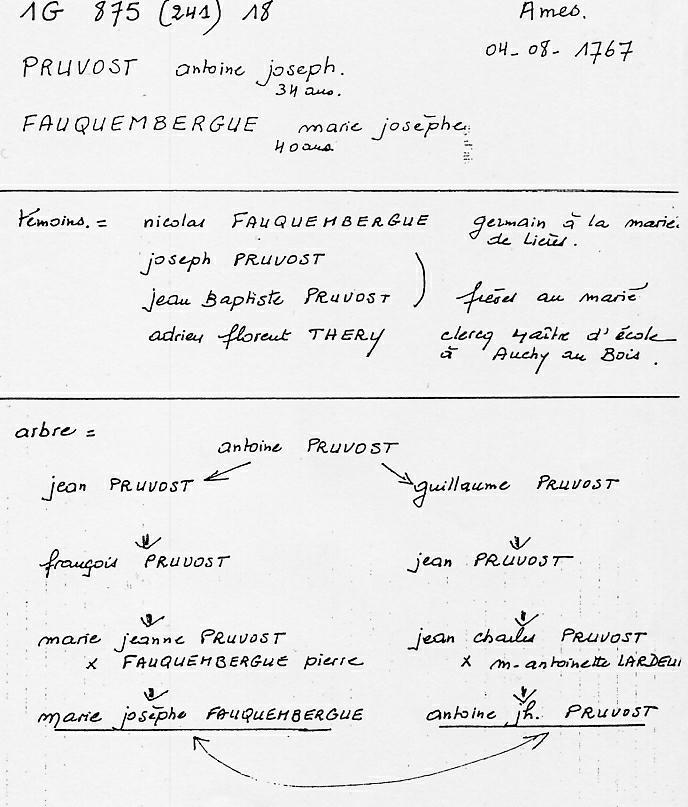 1G 875 (241) 18 Ames.
04-08-1767
PRUVOST antoine joseph.
34 ans.
FAUQUEMBERGUE marie josèphe
40 ans
témoins. = nicolas FAUQUEMBERGUE germain à la marié.
de Lières.
joseph PRUVOST
jean Baptiste PRUVOST ) frères au marié
adrien florent THERY clercq Maître d'école
à Auchy au Bois.
arbre =
antoine PRUVOST
jean PRUVOST guillaume PRUVOST
françois PRUVOST jean PRUVOST
marie jeanne PRUVOST jean charles PRUVOST
x FAUQUEMBERGUE pierre x m-antoinette
marie josèphe FAUQUEMBERGUE antoine jh. PRUVOST